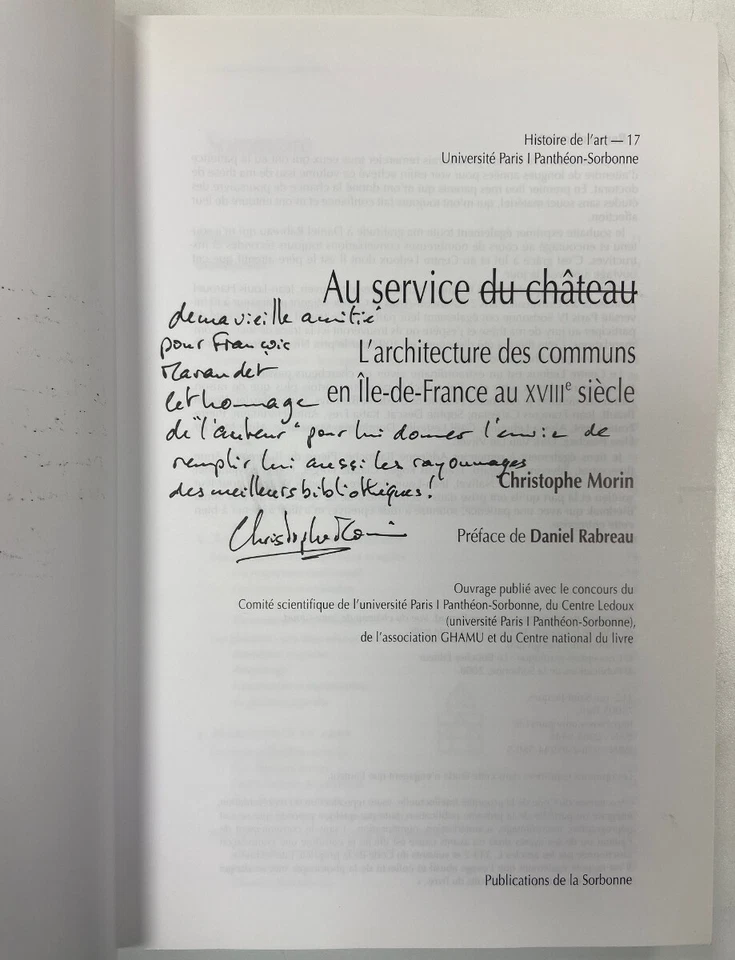 Histoire de l'art — 17
Université Paris I Panthéon-Sorbonne
Au service du château
de ma vieille amitié
pour François
Marandet
L'architecture des communs
en Île-de-France au XVIIIe siècle
cet hommage
de "l'auteur" pour lui donner l'envie de
remplir lui aussi les rayonnages
des meilleurs bibliothèques!
Christophe Morin
Christophe Morin
Préface de Daniel Rabreau
Ouvrage publié avec le concours du
Comité scientifique de l'université Paris I Panthéon-Sorbonne, du Centre Ledoux
(université Paris I Panthéon-Sorbonne),
de l'association GHAMU et du Centre national du livre
Publications de la Sorbonne